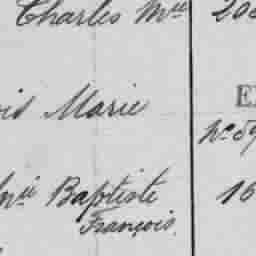 Charles Mce 20
Marie
E
No 59
Baptiste 16
François.